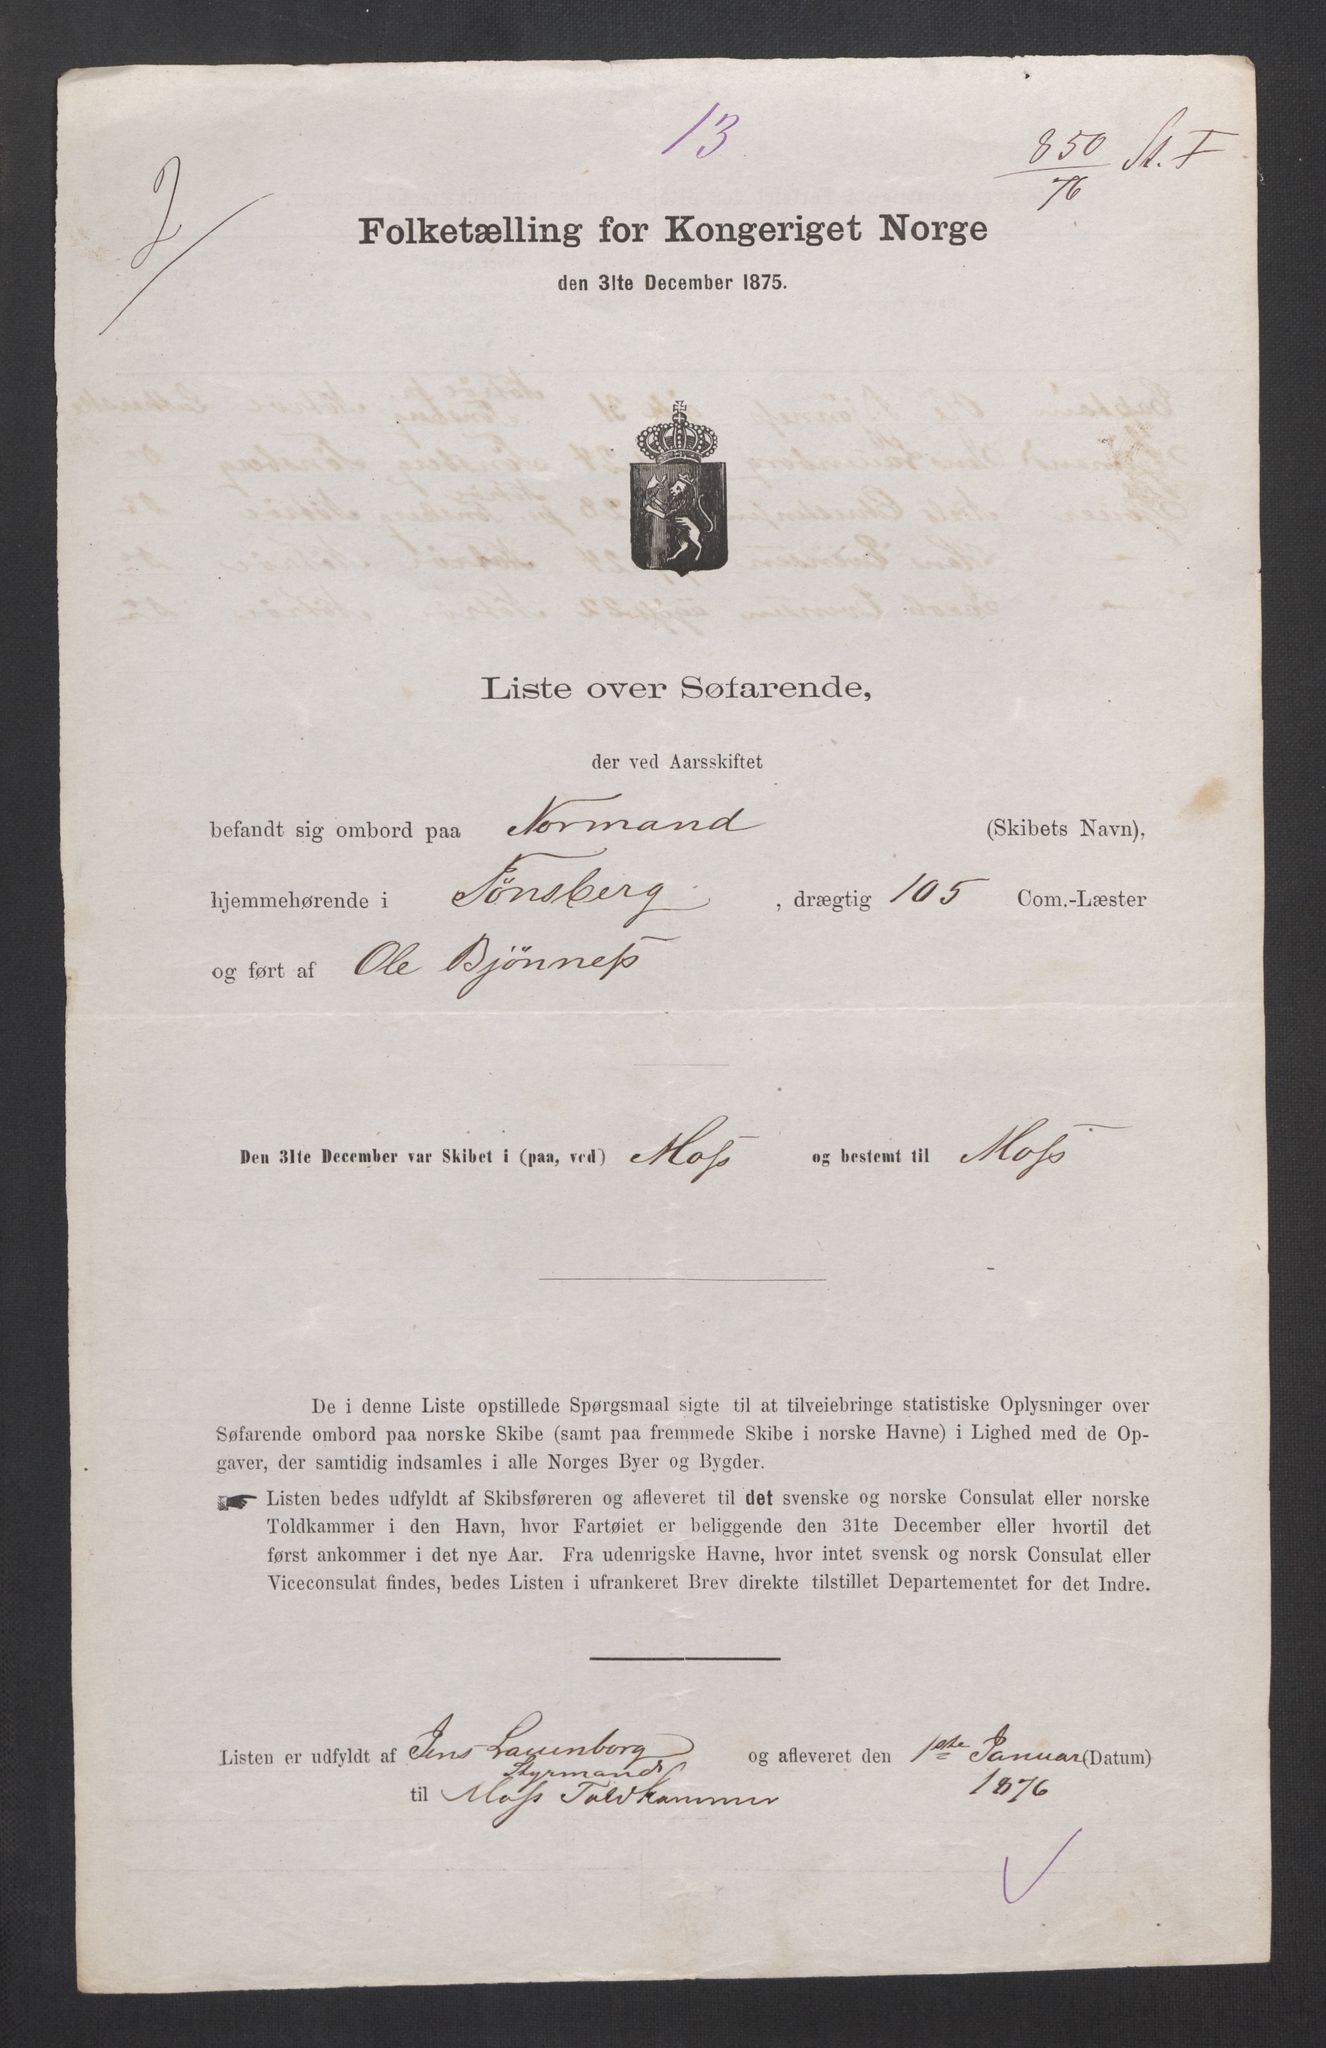 13
850
76
St. F
2
Folketælling for Kongeriget Norge
den 31te December 1875.
Liste over Søfarende,
der ved Aarsskiftet
befandt sig ombord paa Normand (Skibets Navn),
hjemmehørende i Tönsberg, drægtig 105 Com.-Læster
og ført af Ole Bjönness
Den 31te December var Skibet i (paa, ved) Moss og bestemt til Moss
De i denne Liste opstillede Spørgsmaal sigte til at tilveiebringe statistiske Oplysninger over
Søfarende ombord paa norske Skibe (samt paa fremmede Skibe i norske Havne) i Lighed med de Op-
gaver, der samtidig indsamles i alle Norges Byer og Bygder.
Listen bedes udfyldt af Skibsføreren og afleveret til det svenske og norske Consulat eller norske
Toldkammer i den Havn, hvor Fartøiet er beliggende den 31te December eller hvortil det
først ankommer i det nye Aar. Fra udenrigske Havne, hvor intet svensk og norsk Consulat eller
Viceconsulat findes, bedes Listen i ufrankeret Brev direkte tilstillet Departementet for det Indre.
Listen er udfyldt af Jens Lauenborg og afleveret den 1ste Januar (Datum)
Styrmand
til Moss Toldkammer 1876